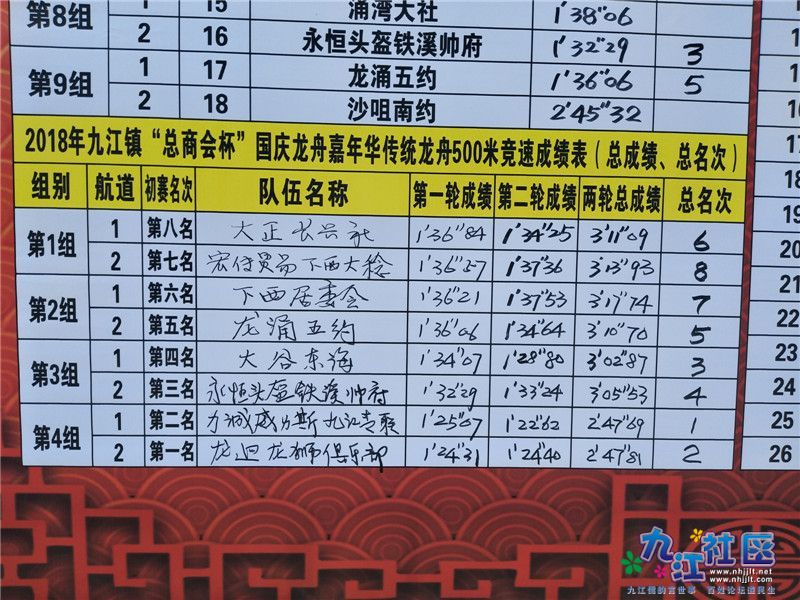 第8组 1 15 涌湾大社 1'38"06
2 16 永恒头盔铁溪帅府 1'32"29 3
第9组 1 17 龙涌五约 1'36"06 5
2 18 沙咀南约 2'45"32
2018年九江镇“总商会杯”国庆龙舟嘉年华传统龙舟500米竞速成绩表（总成绩、总名次）
组别 航道 初赛名次 队伍名称 第一轮成绩 第二轮成绩 两轮总成绩 总名次
第1组 1 第八名 大正长兴社 1'36"84 1'34"25 3'11"09 6
2 第七名 宏佳贸易下西大稔 1'36"57 1'37"36 3'13"93 8
第2组 1 第六名 下西居委会 1'36"21 1'37"53 3'17"74 7
2 第五名 龙涌五约 1'36"06 1'34"64 3'10"70 5
第3组 1 第四名 大谷东海 1'34"07 1'28"80 3'02"87 3
2 第三名 永恒头盔铁溪帅府 1'32"29 1'33"24 3'05"53 4
第4组 1 第二名 力诚威力斯九江青联 1'25"07 1'22"62 2'47"69 1
2 第一名 龙迥龙狮俱乐部 1'24"31 1'24"40 2'47"81 2
17
18
19
20
21
22
23
24
25
26
九江社区
www.nhjjlt.net
www.nhjjlt.com
九江儒韵言世事 百姓论坛道民生